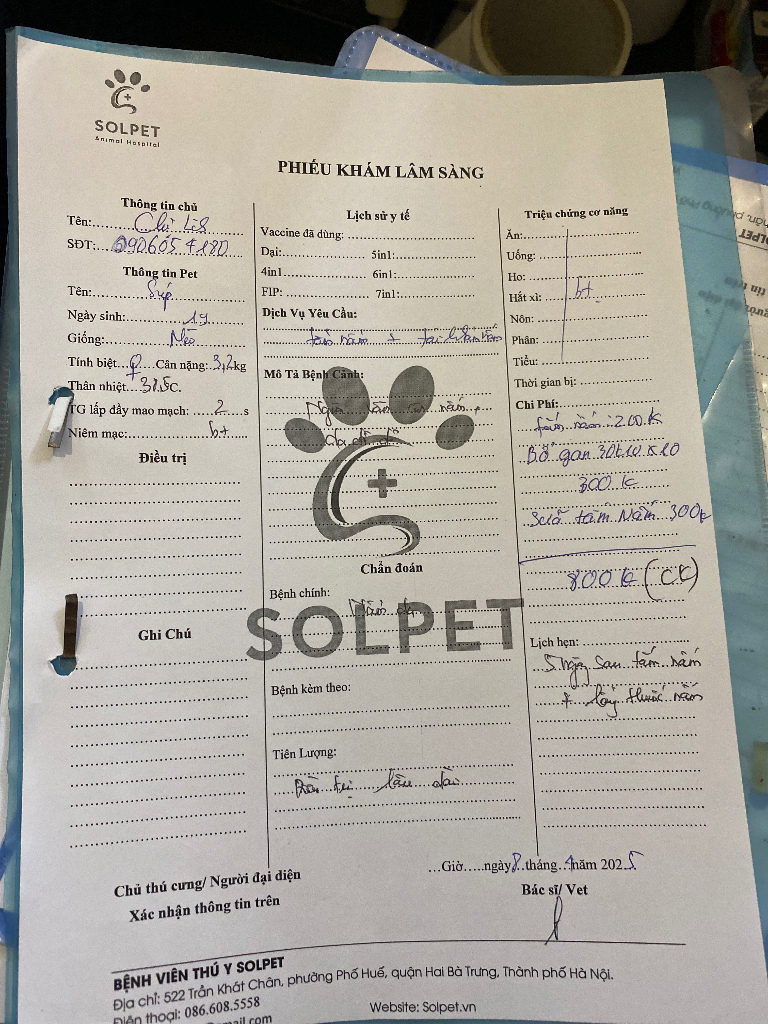 SOLPET
Animal Hospital
PHIẾU KHÁM LÂM SÀNG
Thông tin chủ
Tên: Chị Lis
SĐT: 0906054180
Thông tin Pet
Tên: Súp
Ngày sinh: 1y
Giống: Mèo
Tính biệt ♀ Cân nặng: 3,2kg
Thân nhiệt
TG lấp đầy mao mạch: 2 s
Niêm mạc: bt
Điều trị
Ghi Chú
Lịch sử y tế
Vaccine đã dùng:
Dại: 5in1:
4in1 6in1:
FIP: 7in1:
Dịch Vụ Yêu Cầu:
tắm nấm + tái khám
Mô Tả Bệnh Cảnh:
nấm,
SOLPET
Chẩn đoán
Bệnh chính:
Nấm da
Bệnh kèm theo:
Tiên Lượng:
Điều trị lâu dài
Triệu chứng cơ năng
Ăn:
Uống:
Ho:
Hắt xì: bt
Nôn:
Phân:
Tiểu:
Thời gian bị:
Chi Phí:
tắm nấm: 200k
Bổ gan 30k x 10
300k
Sữa tắm Nấm 300k
800k (CK)
Lịch hẹn:
5 ngày sau tắm nấm
+ lấy thuốc nấm
…Giờ…..ngày 8 tháng 4 năm 2025
Chủ thú cưng/ Người đại diện
Xác nhận thông tin trên
Bác sĩ/ Vet
BỆNH VIỆN THÚ Y SOLPET
Địa chỉ: 522 Trần Khát Chân, phường Phố Huế, quận Hai Bà Trưng, Thành phố Hà Nội.
Điện thoại: 086.608.5558
Website: Solpet.vn